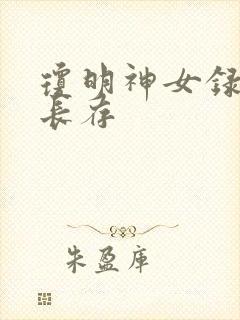 瓊明神女録
長存
朱盈庫